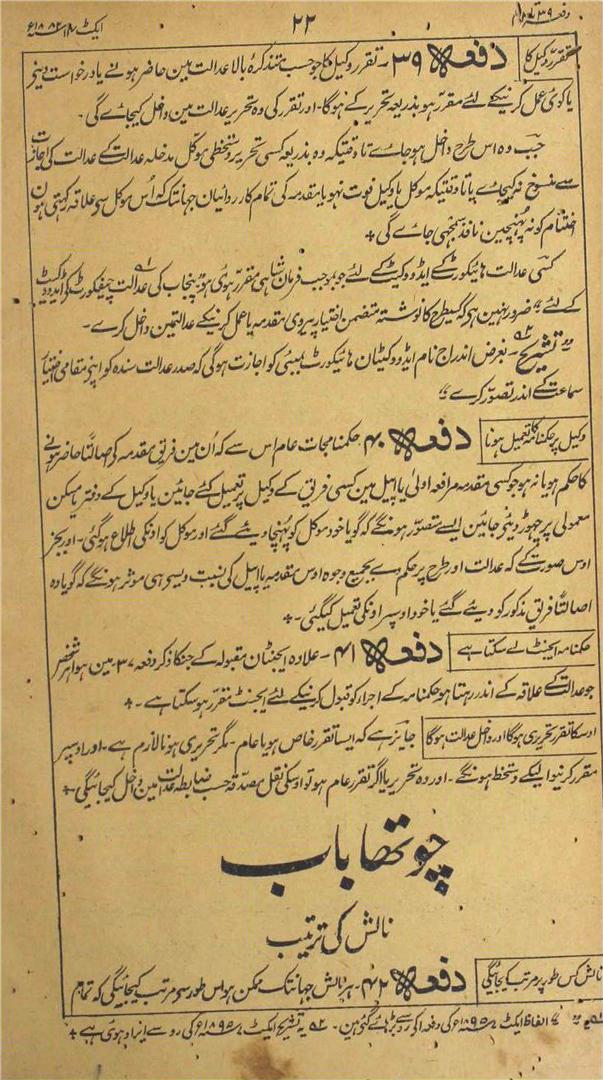 دفعہ ۳۹ تا ۴۲
۲۲
ایکٹ ۱۴ ۱۸۸۲ء
تقرر وکیل کا
دفعہ ۳۹ ۔ تقرر وکیل کا جو حسب متذکرہ بالا عدالت مین حاضر ہونے یا درخواست دینے
یا کوئی عمل کرنیکے لئے مقرر ہو بذریعہ تحریر کے ہوگا ۔ اور تقرر کی وہ تحریر عدالت مین داخل کیجاے گی ۔
جب وہ اس طرح داخل ہو جاے تا وقتیکہ وہ بذریعہ کسی تحریر دستخطی موکل مدخلہ عدالت کے عدالت کی اجازت
سے منسوخ نہ کیجاے یا تا وقتیکہ موکل یا وکیل فوت نہو یا مقدمہ کی تمام کارروائیان جہانتک کہ اُس موکل سے علاقہ رکہتی ہون
اختتام کو نہ پہنچین نافذ سمجہی جاے گی ؞
کسی عدالت ہائیکورٹ کے ایڈووکیٹ کے لئے جو بموجب فرمان شاہی مقرر ہوئی ہو یا پنجاب کی عدالت چیفکورٹ کے ایڈووکیٹ
کے لئے ضرور نہین ہے کہ کسیطرح کا نوشتہ متضمن اختیار پیروی مقدمہ یا عمل کرنیکے عدالت مین داخل کرے ۔
تشریح ۔ بغرض اندراج نام ایڈووکیٹان ہائیکورٹ بمبئی کو اجازت ہوگی کہ صدر عدالت سندہ کو اپنے مقامی اختیار
سماعت کے اندر تصور کرے
وکیل پر حکمنامہ کا تعمیل ہونا
دفعہ ۴۰ ۔ حکمنامجات عام اس سے کہ اُن مین فریق مقدمہ کو اصالتاً حاضر ہونے
کا حکم ہو یا نہ ہو جو کسی مقدمہ مرافعہ اولیٰ یا اپیل مین کسی فریق کے وکیل پر تعمیل کئے جائین یا وکیل کے دفتر یا مسکن
معمولی پر چہوڑ دیئے جائین ایسے متصور ہونگے کہ گویا خود موکل کو پہنچا دیئے گئے اور موکل کو اونکی اطلاع ہو گئی ۔ اور بجز
اوس صورت کے کہ عدالت اور طرح پر حکم دے بجمیع وجوہ اوس مقدمہ یا اپیل کی نسبت ویسے ہی موثر ہونگے کہ گویا وہ
اصالتاً فریق مذکور کو دیئے گئے یا خود اوسپر اونکی تعمیل کیگئی ۔ ؞
حکمنامہ ایجنٹ لے سکتا ہے
دفعہ ۴۱ ۔ علاوہ ایجنٹان مقبولہ کے جنکا ذکر دفعہ ۳۷ مین ہوا ہر شخص
جو عدالت کے علاقہ کے اندر رہتا ہو حکمنامہ کے اجرا کو قبول کرنیکے لئے ایجنٹ مقرر ہو سکتا ہے ۔ ؞
اوسکا تقرر تحریری ہوگا اور داخل عدالت ہوگا
جایز ہے کہ ایسا تقرر خاص ہو یا عام ۔ مگر تحریری ہونا لازم ہے ۔ اور اوسپر
مقرر کرنیوالیکے دستخط ہونگے ۔ اور وہ تحریر یا اگر تقرر عام ہو تو اوسکی نقل مصدقہ حسب ضابطہ عدالت مین داخل کیجائیگی ۔ ؞
چوتھا باب
نالش کی ترتیب
نالش کس طور پر مرتب کیجائیگی
دفعہ ۴۲ ۔ ہر نالش جہانتک ممکن ہو اس طور سے مرتب کیجائیگی کہ تمام
الفاظ ایکٹ ۱۸۹۵ء کی دفعہ کی رو سے بڑہائے گئے ہین ۔ یہ تشریح ایکٹ ۱۸۹۵ء کی رو سے ایزاد ہوئی ہے ؞